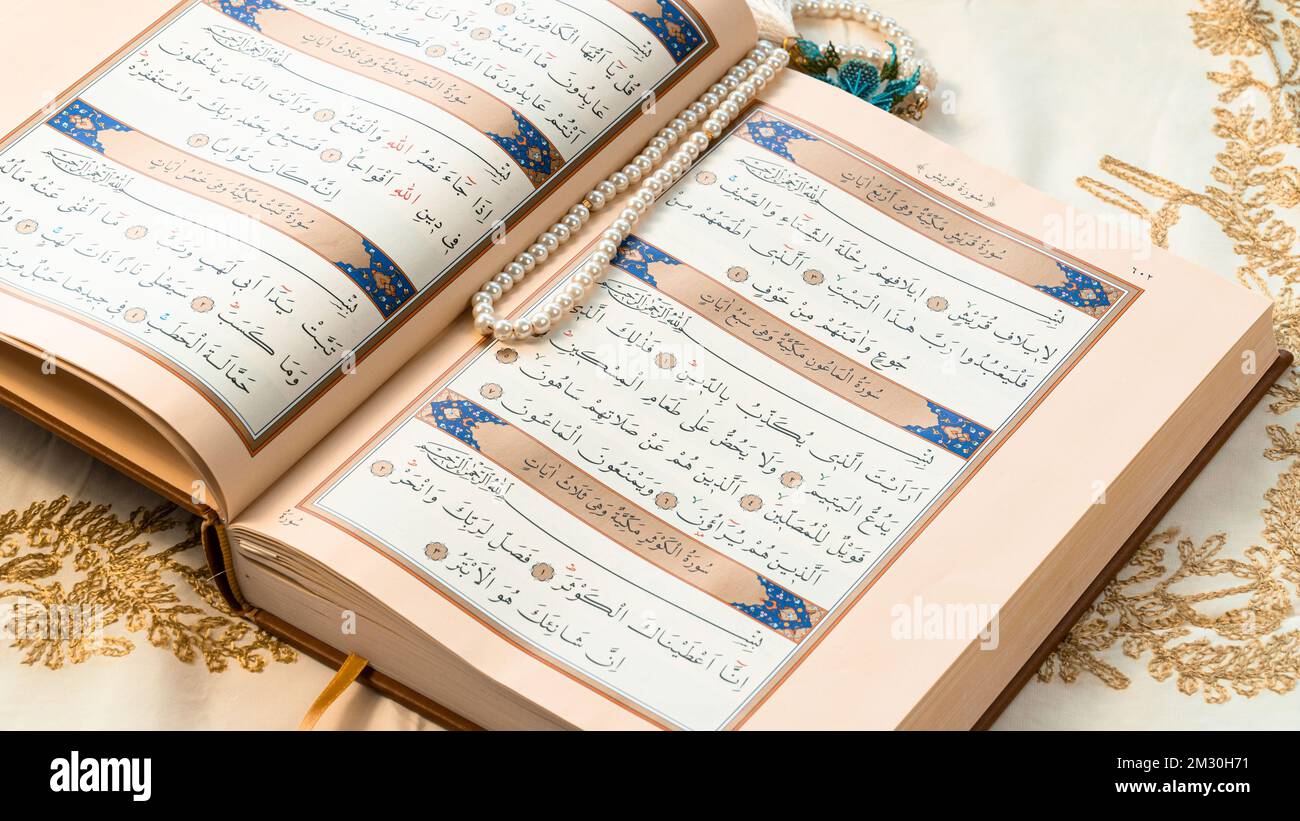 سُورَةُ قُرَيْشٍ
٦٠٢
سُورَةُ قُرَيْشٍ مَكِّيَّةٌ وَهِيَ أَرْبَعُ اٰيَاتٍ
بِسْمِ اللّٰهِ الرَّحْمٰنِ الرَّحِيمِ
لِاِيلَافِ قُرَيْشٍۙ ١ اِيلَافِهِمْ رِحْلَةَ الشِّتَٓاءِ وَالصَّيْفِۚ ٢
فَلْيَعْبُدُوا رَبَّ هٰذَا الْبَيْتِۙ ٣ اَلَّذِٓي اَطْعَمَهُمْ مِنْ
جُوعٍ وَاٰمَنَهُمْ مِنْ خَوْفٍ ٤
سُورَةُ الْمَاعُونِ مَكِّيَّةٌ وَهِيَ سَبْعُ اٰيَاتٍ
بِسْمِ اللّٰهِ الرَّحْمٰنِ الرَّحِيمِ
اَرَاَيْتَ الَّذِي يُكَذِّبُ بِالدِّينِۜ ١ فَذٰلِكَ الَّذِي
يَدُعُّ الْيَتِيمَۙ ٢ وَلَا يَحُضُّ عَلٰى طَعَامِ الْمِسْكِينِۜ ٣
فَوَيْلٌ لِلْمُصَلِّينَۙ ٤ اَلَّذِينَ هُمْ عَنْ صَلَاتِهِمْ سَاهُونَۙ ٥
اَلَّذِينَ هُمْ يُرَٓاؤُنَۙ ٦ وَيَمْنَعُونَ الْمَاعُونَ ٧
سُورَةُ الْكَوْثَرِ مَكِّيَّةٌ وَهِيَ ثَلَاثُ اٰيَاتٍ
بِسْمِ اللّٰهِ الرَّحْمٰنِ الرَّحِيمِ
اِنَّٓا اَعْطَيْنَاكَ الْكَوْثَرَۜ ١ فَصَلِّ لِرَبِّكَ وَانْحَرْۜ ٢
اِنَّ شَانِئَكَ هُوَ الْاَبْتَرُ ٣
سُورَةُ
قُلْ يَٓا اَيُّهَا الْكَافِرُونَۙ
عَابِدُونَ مَٓا اَعْبُدُۚ ٣ وَلَٓا اَنَا عَابِدٌ
اَنْتُمْ عَابِدُونَ مَٓا اَعْبُدُۜ
سُورَةُ النَّصْرِ مَدَنِيَّةٌ وَهِيَ ثَلَاثُ اٰيَاتٍ
بِسْمِ اللّٰهِ الرَّحْمٰنِ الرَّحِيمِ
اِذَا جَٓاءَ نَصْرُ اللّٰهِ وَالْفَتْحُۙ ١ وَرَاَيْتَ النَّاسَ يَدْخُلُونَ
فِي دِينِ اللّٰهِ اَفْوَاجًاۙ ٢ فَسَبِّحْ بِحَمْدِ رَبِّكَ وَاسْتَغْفِرْهُۜ
اِنَّهُ كَانَ تَوَّابًا ٣
سُورَةُ تَبَّتْ مَكِّيَّةٌ وَهِيَ خَمْسُ اٰيَاتٍ
بِسْمِ اللّٰهِ الرَّحْمٰنِ الرَّحِيمِ
تَبَّتْ يَدَٓا اَبِي لَهَبٍ وَتَبَّۜ ١ مَٓا اَغْنٰى عَنْهُ مَالُهُ
وَمَا كَسَبَۜ ٢ سَيَصْلٰى نَارًا ذَاتَ لَهَبٍۚ ٣
حَمَّالَةَ الْحَطَبِۚ ٤ فِي جِيدِهَا حَبْلٌ مِنْ
alamy
Image ID: 2M30H71
www.alamy.com